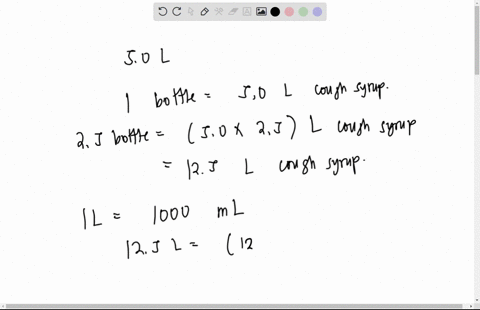 5.0 L
1 bottle = 5.0 L cough syrup.
2.5 bottle = (5.0 x 2.5) L cough syrup
= 12.5 L cough syrup.
1L = 1000 mL
12.5 L = (12